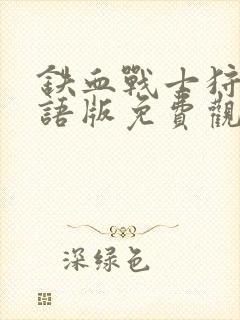 鉄血戰士狩
語版免費觀
深绿色